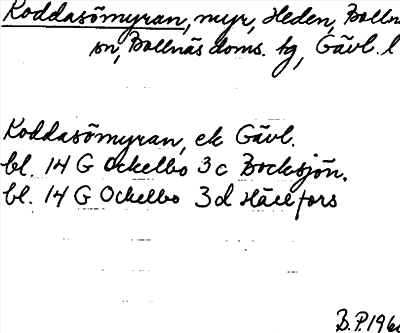 Koddasömyran, myr, Heden, Bolln
sn, Bollnäs doms. tg, Gävl. l
Koddasömyran, ek Gävl.
bl. 14 G Ockelbo 3c Bocksjön.
bl. 14 G Ockelbo 3d Hällfors
B.P. 196